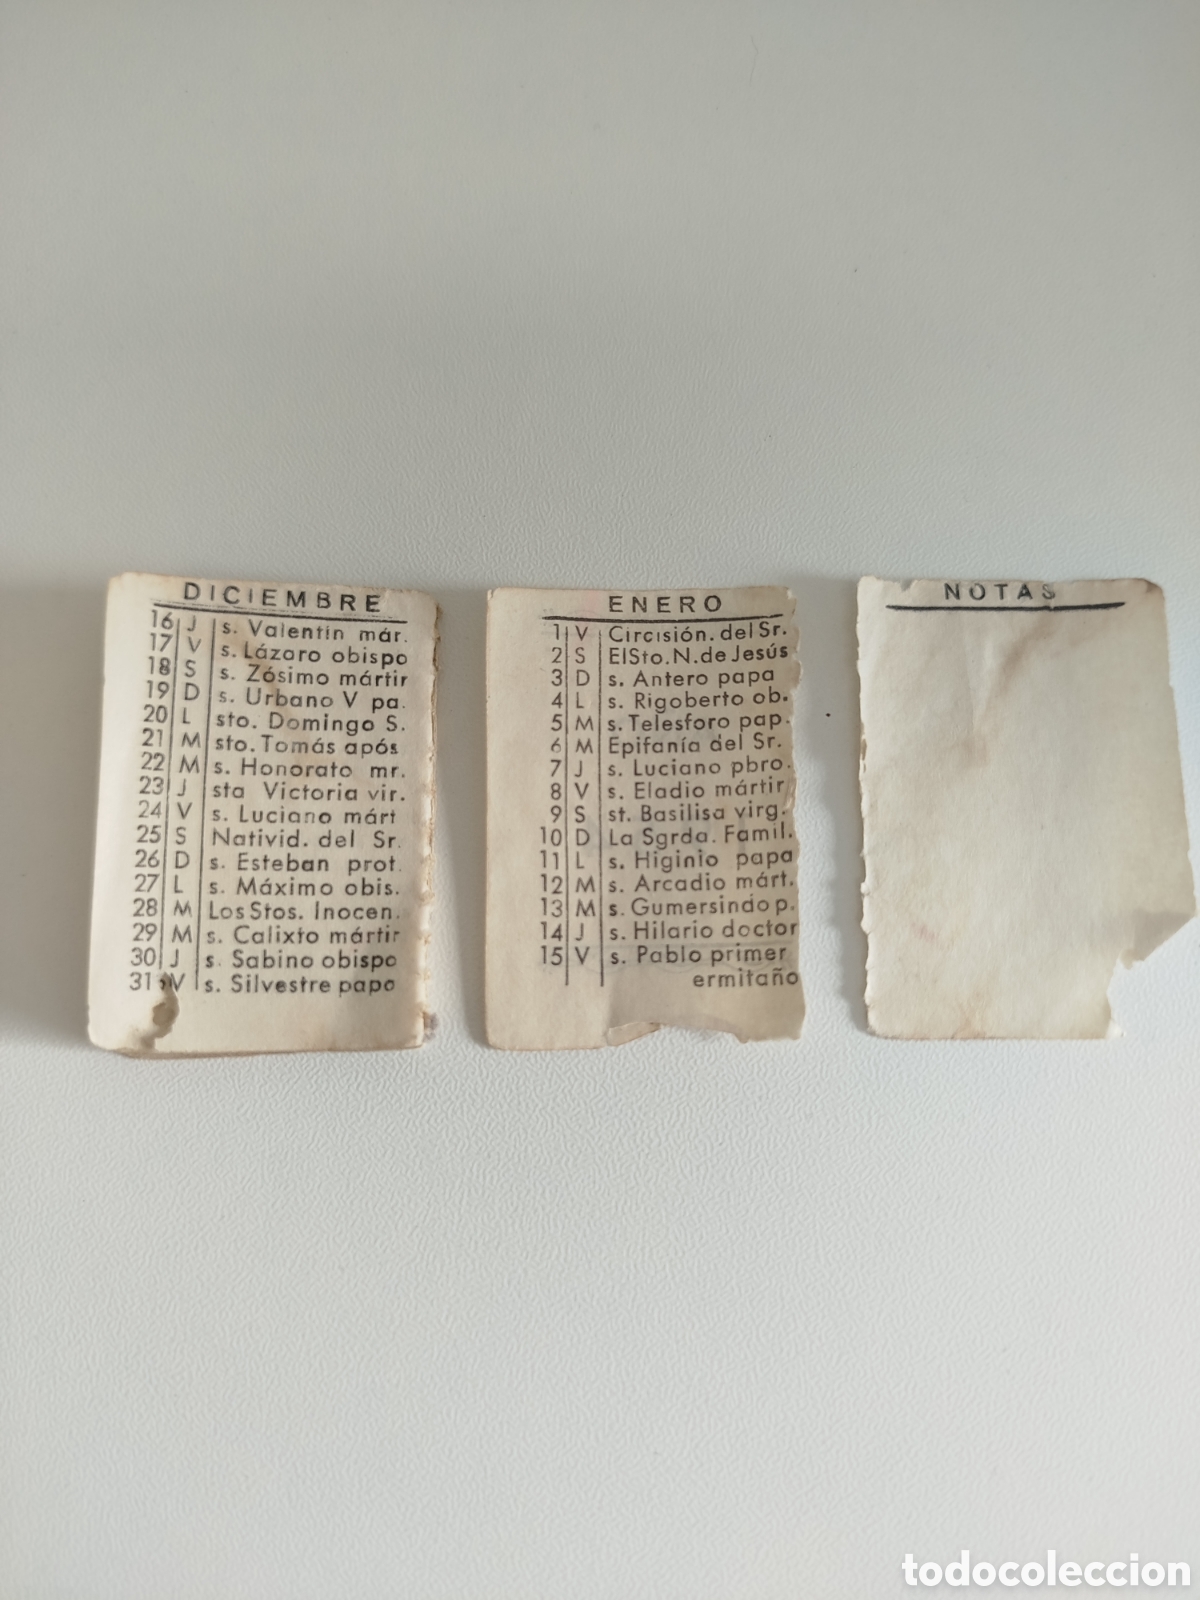 DICIEMBRE
16 J s. Valentin már.
17 V s. Lázaro obispo
18 S s. Zósimo mártir
19 D s. Urbano V pa.
20 L sto. Domingo S.
21 M sto. Tomás após
22 M s. Honorato mr.
23 J sta Victoria vir.
24 V s. Luciano márt
25 S Nativid. del Sr.
26 D s. Esteban prot.
27 L s. Máximo obis.
28 M Los Stos. Inocen.
29 M s. Calixto mártir
30 J s. Sabino obispo
31 V s. Silvestre papa
ENERO
1 V Circisión. del Sr.
2 S El Sto. N. de Jesús
3 D s. Antero papa
4 L s. Rigoberto ob.
5 M s. Telesforo pap.
6 M Epifanía del Sr.
7 J s. Luciano pbro.
8 V s. Eladio mártir
9 S st. Basilisa virg.
10 D La Sgrda. Famil.
11 L s. Higinio papa
12 M s. Arcadio márt.
13 M s. Gumersindo p.
14 J s. Hilario doctor
15 V s. Pablo primer
ermitaño
NOTAS
todocoleccion